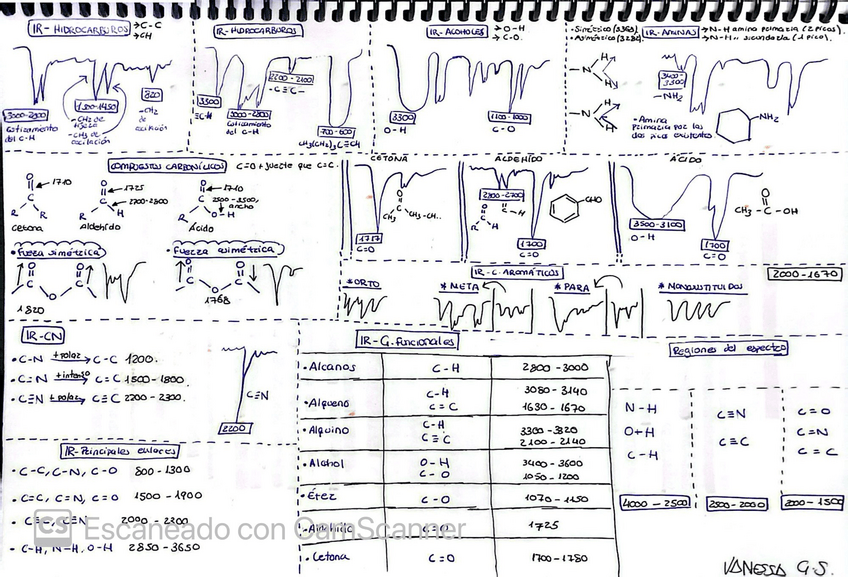 IR- HIDROCARBUROS
→C-C
→CH
3000-2800
estiramiento
del C-H
1300-1450
-CH2 de
-CH3 de
oscilación
820
-CH2
de
oscilación
IR-HIDROCARBUROS
3300
≡C-H
3000-2800
estiramiento
del C-H
2200-2100
-C≡C-
700-600
CH3(CH2)3C≡CH
IR-ALCOHOLES
→O-H
→C-O.
3300
O-H
1100-1000
C-O
IR-AMINAS
→N-H amino primaria (2 picos).
→N-H
secundaria (1 pico).
3400-
3300
-NH2
-N
H
H
-N
H
H
-Amina
primaria por los
dos picos existentes
NH2
COMPUESTOS CARBONÍLICOS
C=O + fuerte que C=C.
O
←1710
R R
Cetona
O
←1725
←2700-2800
R H
Aldehído
O
←1710
2500-3500,
ancho
R O-H
Ácido
• fuerza simétrica
O O
O
1820
• fuerza asimétrica
O O
O
1768
CETONA
O
CH3
CH2-CH..
1717
C=O
ALDEHÍDO
2800-2700
O
R H
-C-H
CHO
1700
C=O
ÁCIDO
3500-3100
O-H
O
CH3-C-OH
1700
C=O
IR-C.AROMÁTICOS
2000-1670
*ORTO
*META
*PARA
*MONOSUSTITUIDOS
IR-CN
•C-N +polar→ C-C 1200.
•C=N +intenso→ C=C 1500-1800.
•C≡N +polar→ C≡C 2200-2300.
C≡N
2200
IR-Principales enlaces
•C-C, C-N, C-O 800-1300
•C=C, C=N, C=O 1500-1900
•C≡C, C≡N 2000-2300
•C-H, N-H, O-H 2850-3650
IR-G.Funcionales
•Alcanos C-H 2800-3000
•Alqueno C-H 3080-3140
C=C 1630-1670
•Alquino C-H 3300-3320
C≡C 2100-2140
•Alcohol O-H 3400-3600
C-O 1050-1200
•Éter C-O 1070-1150
•Aldehído C=O 1725
•Cetona C=O 1700-1780
Regiones del espectro
N-H
O-H
C-H
4000-2500
C≡N
C≡C
2500-2000
C=O
C=N
C=C
2000-1500
CS Escaneado con CamScanner
VANESSA G.S.